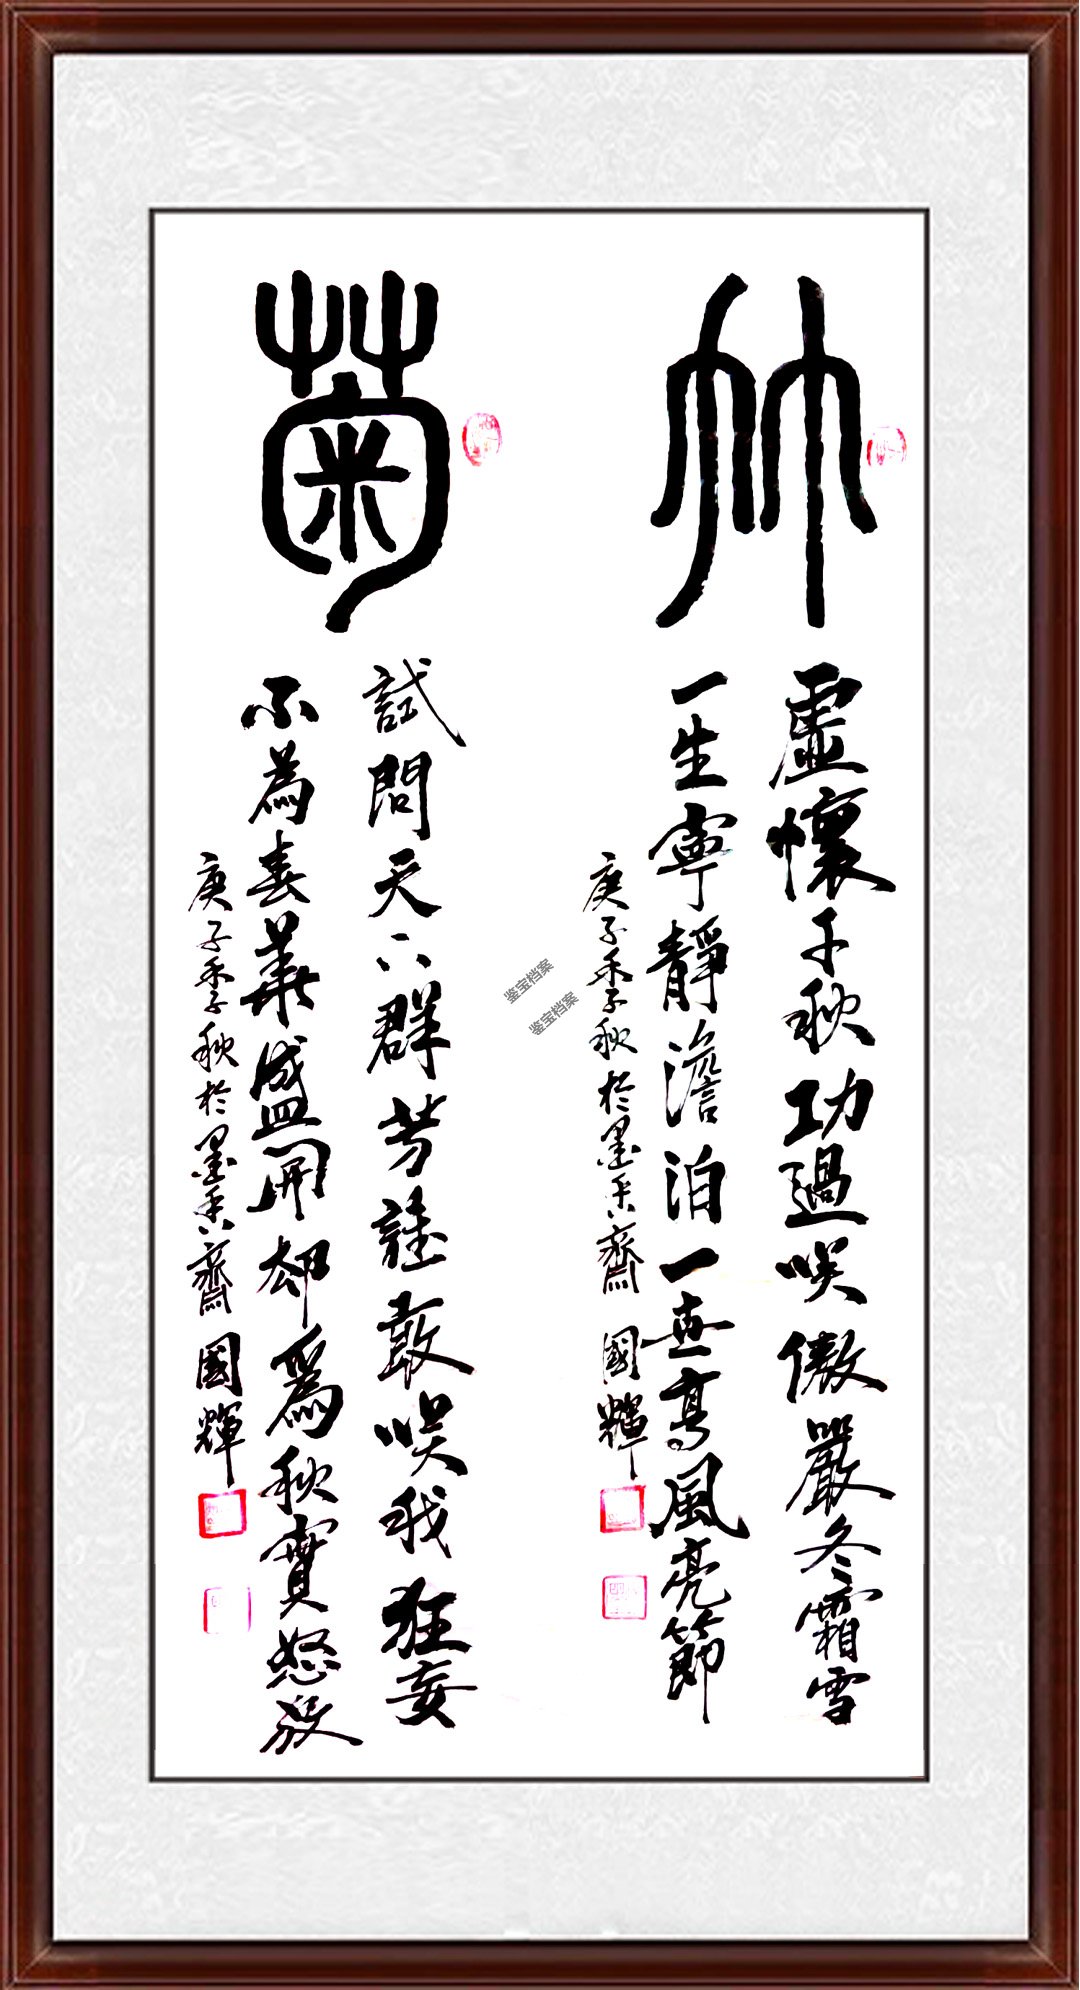 竹
虛懷千秋功過咲傲嚴冬霜雪
一生寧靜澹泊一世高風亮節
庚子季秋於墨香齋 國輝
菊
試問天下群芳誰敢咲我狂妄
不為春華盛開却爲秋實怒放
庚子季秋於墨香齋 國輝
鉴宝档案
鉴宝档案